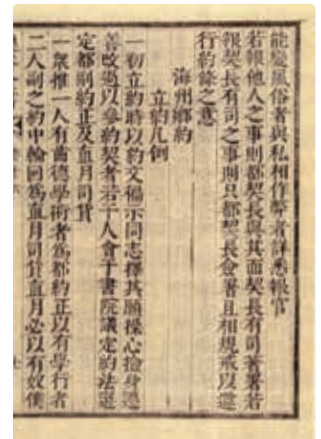 能變風俗者與私相作弊者詳悉報官
若報他人之事則都契長與其面契長有司著署若
報契長有司之事則只都契長僉署且相規戒以遵
行約條之意
海州鄉約
立約凡例
一初立約時以約文徧示同志擇其願操心檢身遷
善改過以參約契者若干人會于書院議定約法選
定都副約正及直月司貨
一衆推一人有齒德學術者爲都約正以有學行者
二人副之約中輪回爲直月司貨直月必以有奴僕